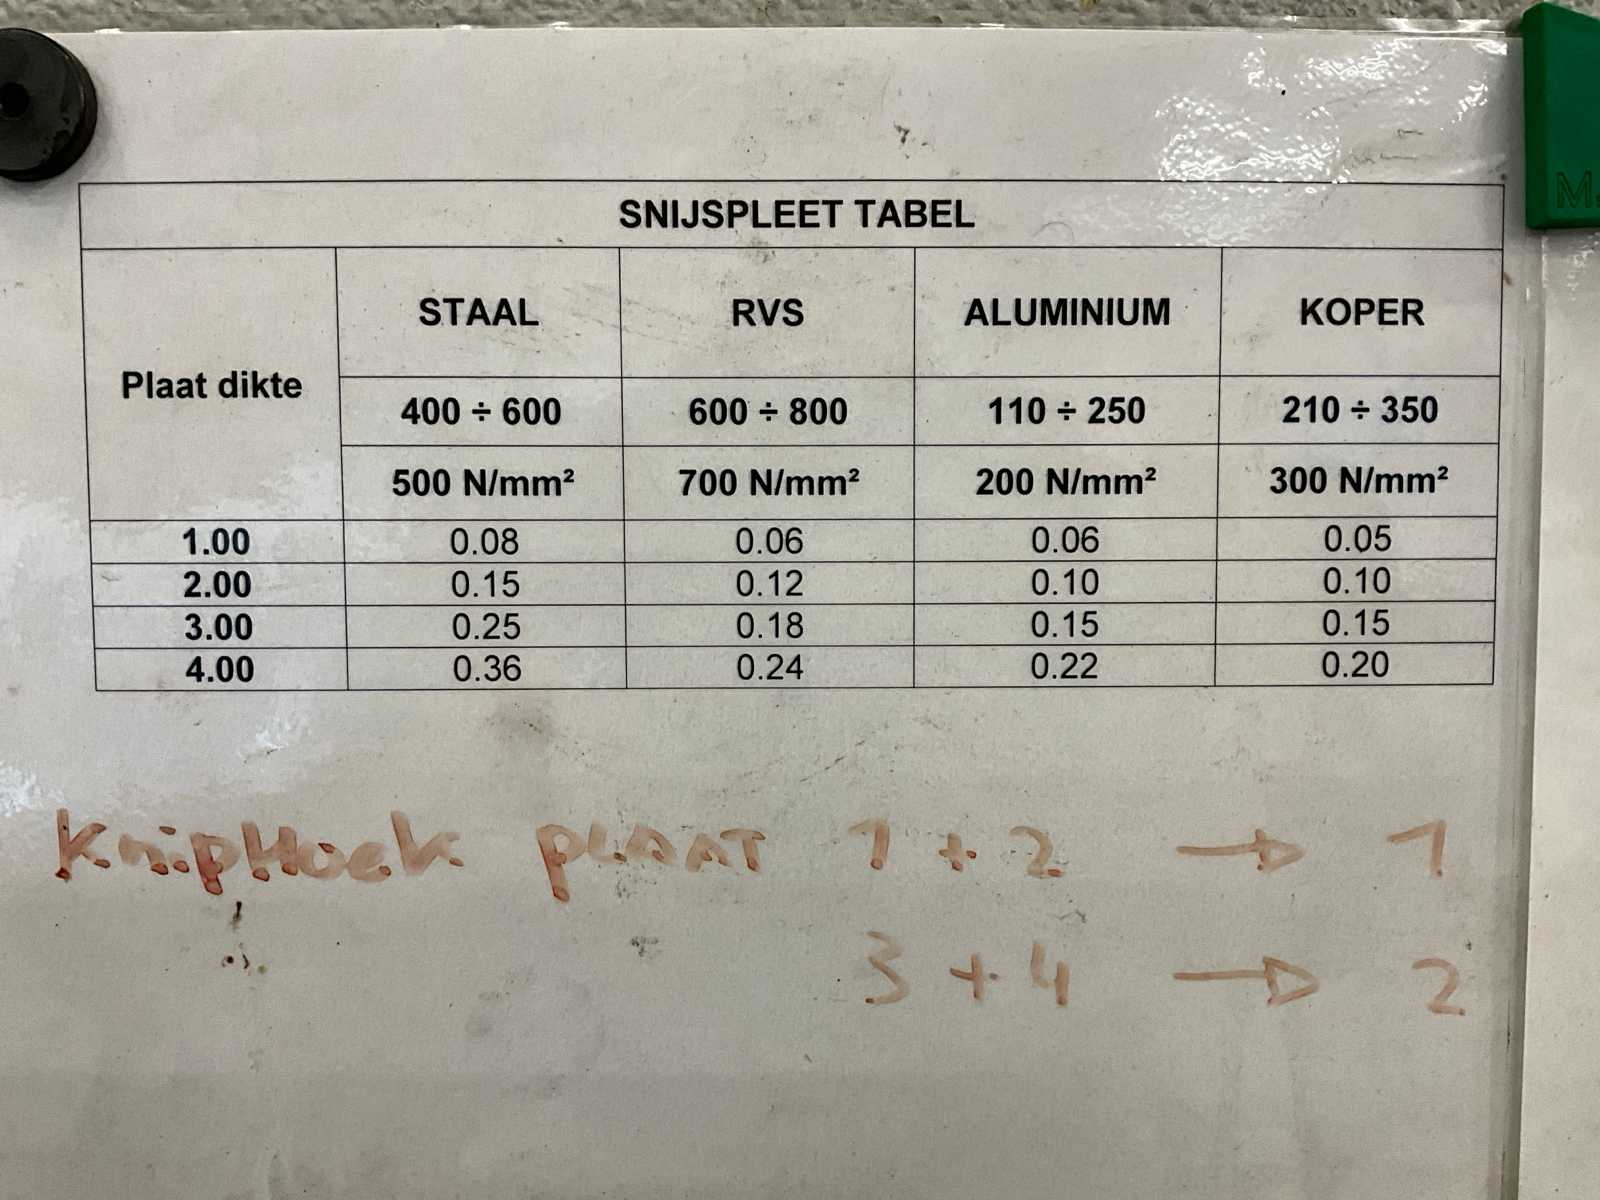 SNIJSPLEET TABEL
Plaat dikte STAAL RVS ALUMINIUM KOPER
400 ÷ 600 600 ÷ 800 110 ÷ 250 210 ÷ 350
500 N/mm² 700 N/mm² 200 N/mm² 300 N/mm²
1.00 0.08 0.06 0.06 0.05
2.00 0.15 0.12 0.10 0.10
3.00 0.25 0.18 0.15 0.15
4.00 0.36 0.24 0.22 0.20
KnipHoek PLAAT 1 + 2 → 1
3 + 4 → 2